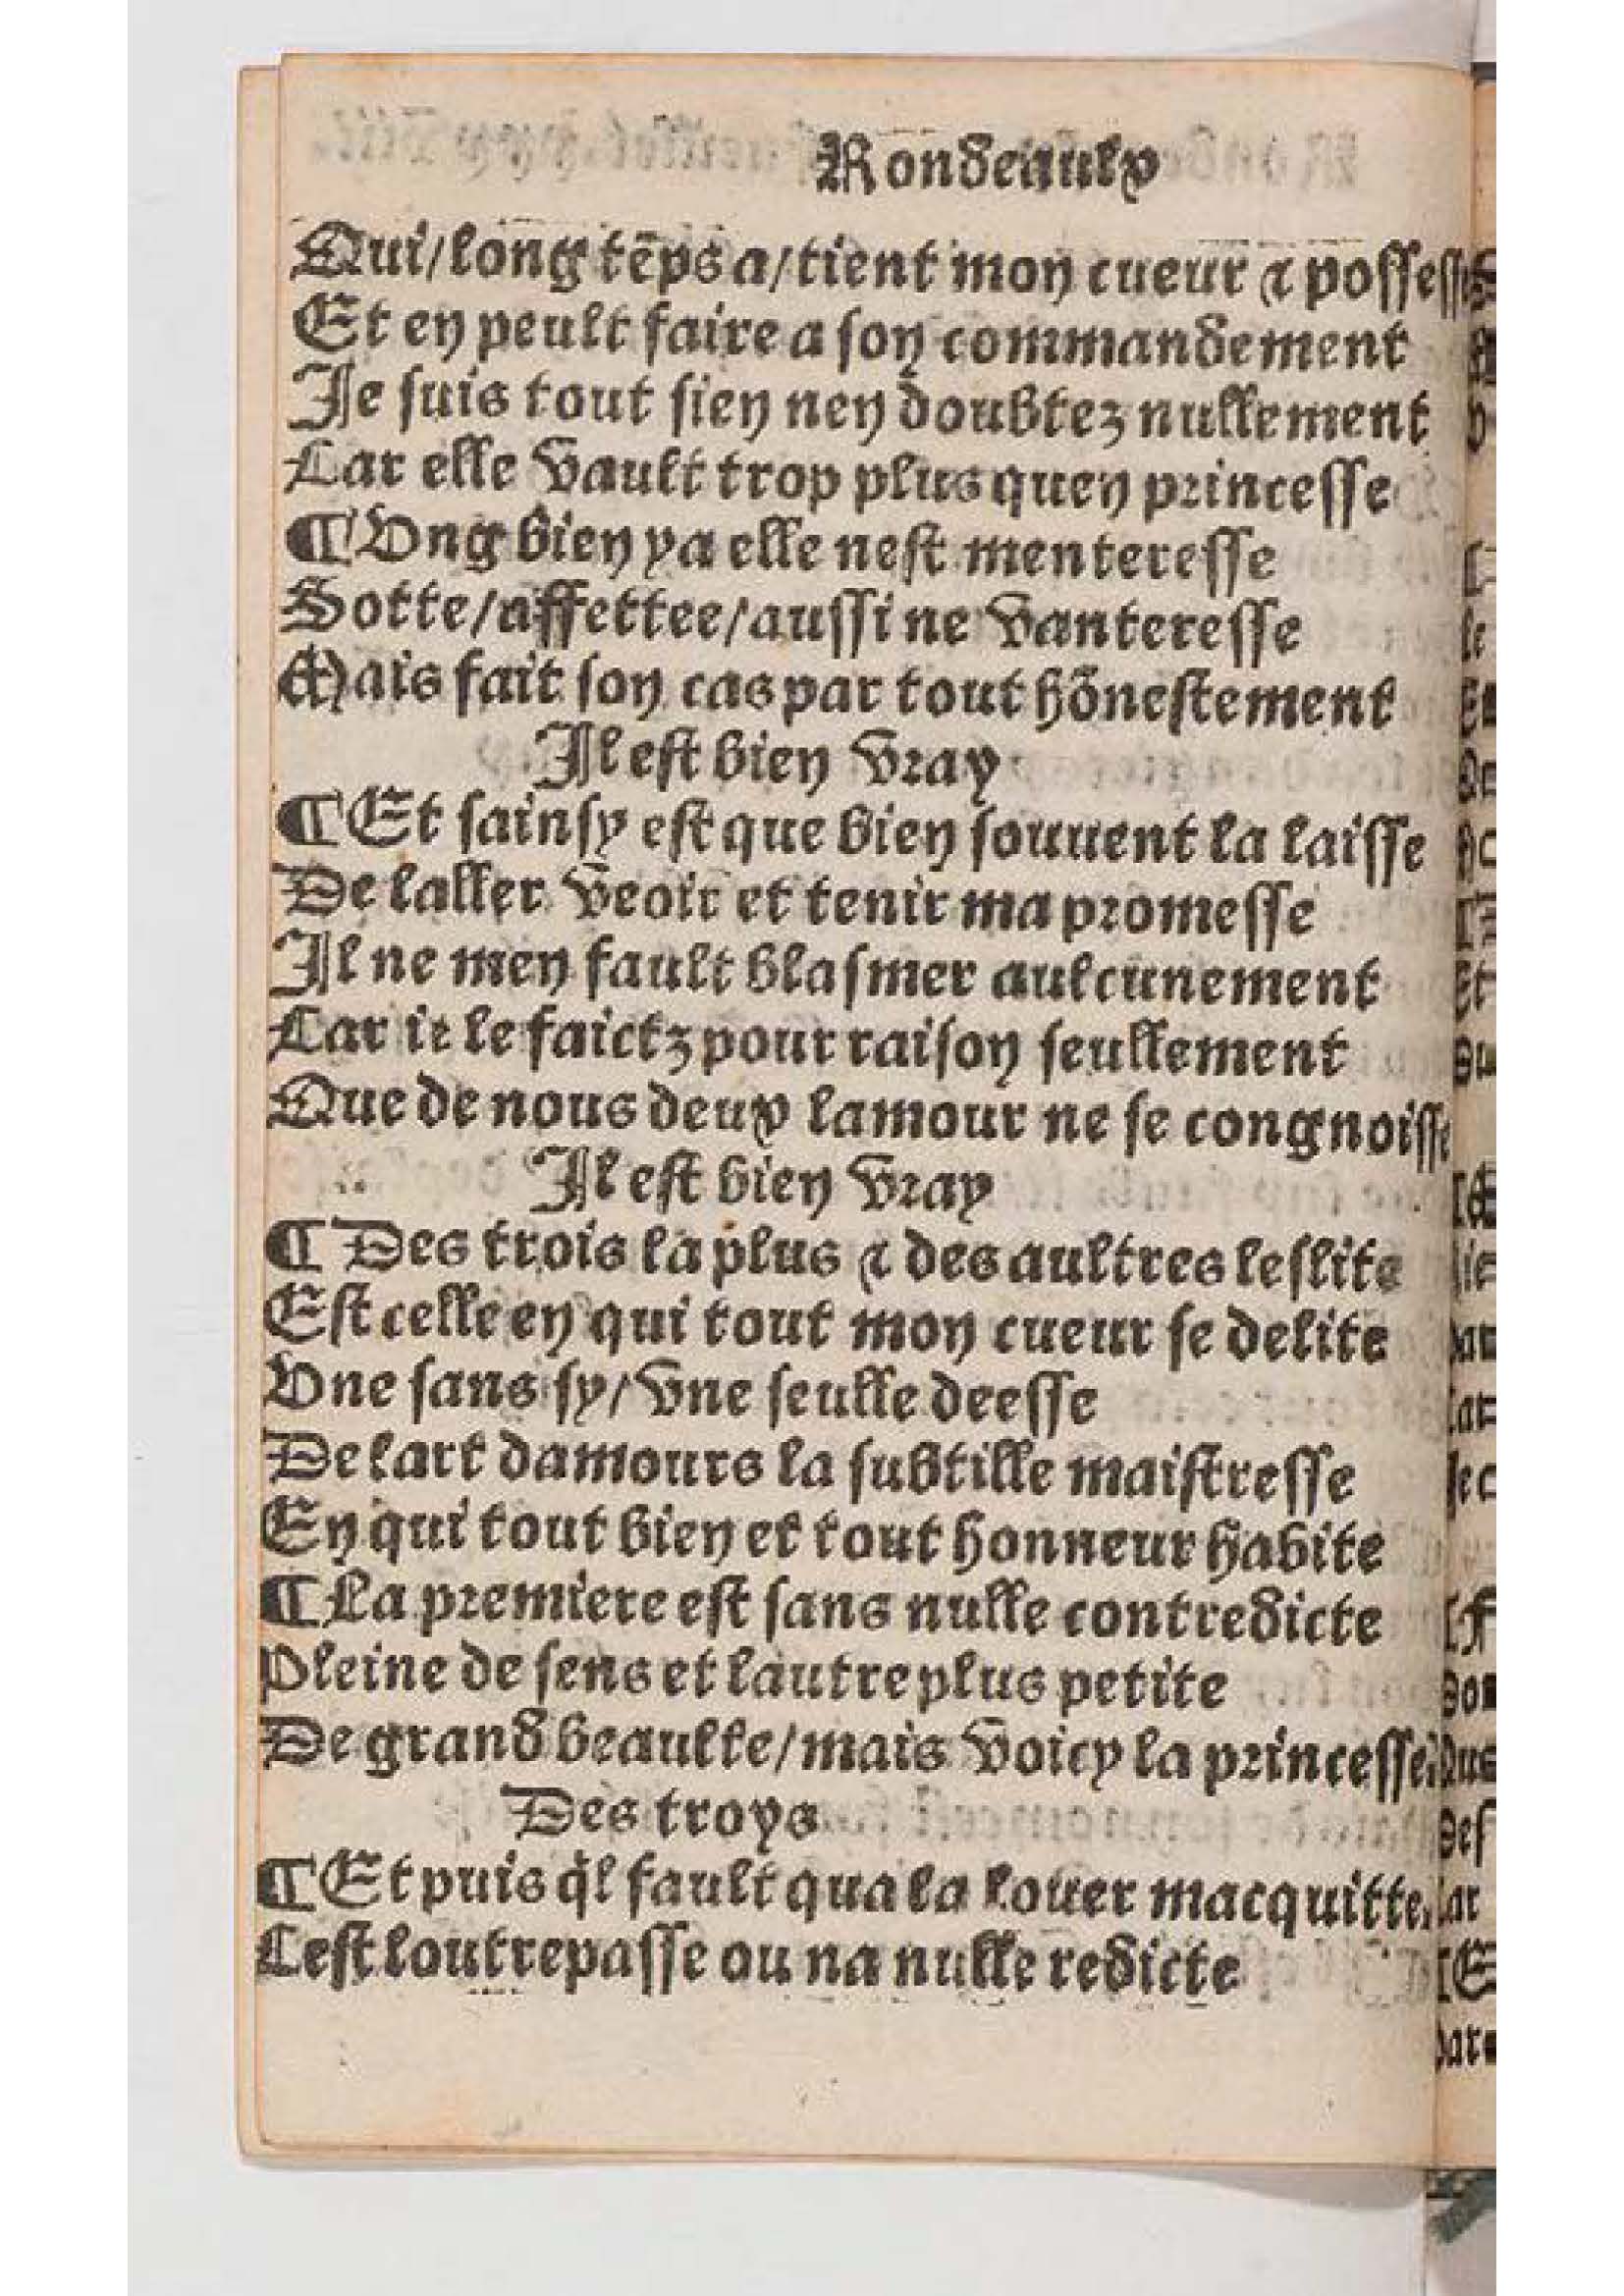 Rondeaulx
Qui/long tẽps a/tient mon cueur & possesse
Et en peult faire a son commandement
Je suis tout sien nen doubtez nullement
Car elle vault trop plus quen princesse
¶Ung bien ya elle nest menteresse
Sotte/affettee/aussi ne vanteresse
Mais fait son cas par tout hõnestement
Il est bien vray
¶Et sainsy est que bien souuent la laisse
De laller veoir et tenir ma promesse
Il ne men fault blasmer aulcunement
Car ie le faictz pour raison seullement
Que de nous deux lamour ne se congnoisse
Il est bien vray
¶Des trois la plus & des aultres leslite
Est celle en qui tout mon cueur se delite
Une sans sy/vne seulle deesse
De lart damours la subtille maistresse
En qui tout bien et tout honneur habite
¶La premiere est sans nulle contredicte
Pleine de sens et lautre plus petite
De grand beaulte/mais voicy la princesse
Des troys
¶Et puis q̃l fault qua la louer macquitte
Cest loutrepasse ou na nulle redicte